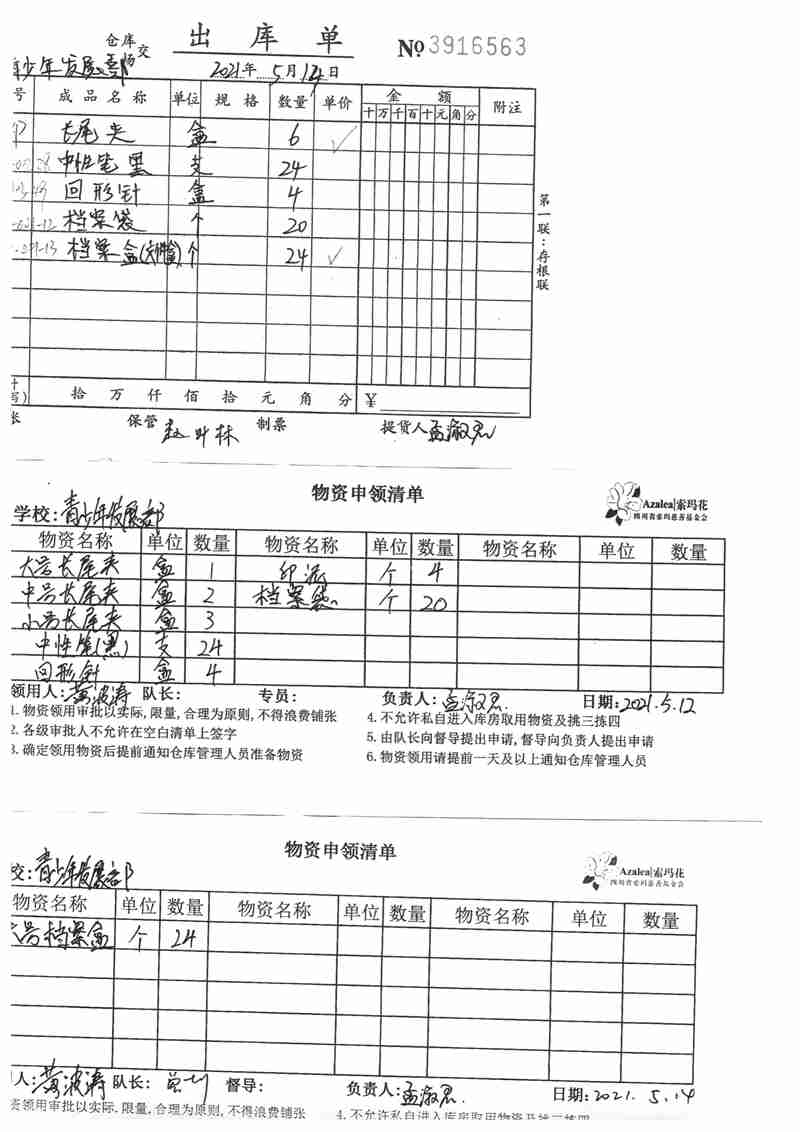 仓库 交 出 库 单 No 3916563
少年发展部 2021年 5月14日
号 成品名称 单位 规格 数量 单价 金额 附注
十 万 千 百 十 元 角 分
长尾夹 盒 6 ✓
中性笔 黑 支 24
回形针 盒 4
档案袋 个 20
档案盒(文件盒) 个 24 ✓
第一联:存根联
拾 万 仟 佰 拾 元 角 分 ¥
保管 赵叶林 制票 提货人 孟淑君
物资申领清单
Azalea|索玛花
四川省索玛慈善基金会
学校:青少年发展部
物资名称 单位 数量 物资名称 单位 数量 物资名称 单位 数量
大号长尾夹 盒 1 印泥 个 4
中号长尾夹 盒 2 档案袋 个 20
小号长尾夹 盒 3
中性笔(黑) 支 24
回形针 盒 4
领用人:黄波涛 队长: 专员: 负责人:孟淑君 日期:2021.5.12
1. 物资领用审批以实际,限量,合理为原则,不得浪费铺张 4. 不允许私自进入库房取用物资及挑三拣四
2. 各级审批人不允许在空白清单上签字 5. 由队长向督导提出申请,督导向负责人提出申请
3. 确定领用物资后提前通知仓库管理人员准备物资 6. 物资领用请提前一天及以上通知仓库管理人员
物资申领清单
Azalea|索玛花
四川省索玛慈善基金会
交:青少年发展部
物资名称 单位 数量 物资名称 单位 数量 物资名称 单位 数量
大号档案盒 个 24
人:黄波涛 队长: 督导: 负责人:孟淑君 日期:2021.5.14
资领用审批以实际.限量,合理为原则,不得浪费铺张 4. 不允许私自进入库房取用物资及挑三拣四